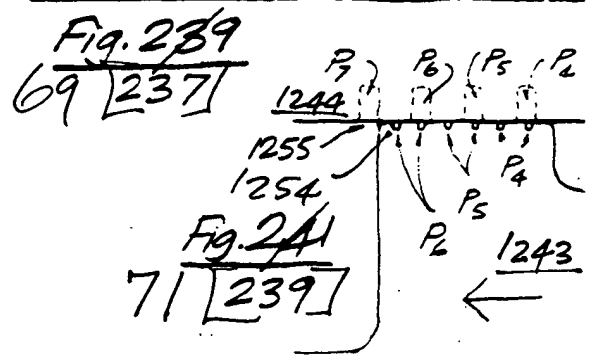 Fig. 239
69 [237]
P7 P6 P5 P4
1244
1255
1254
P4
P5
P6
Fig. 241
71 [239]
1243